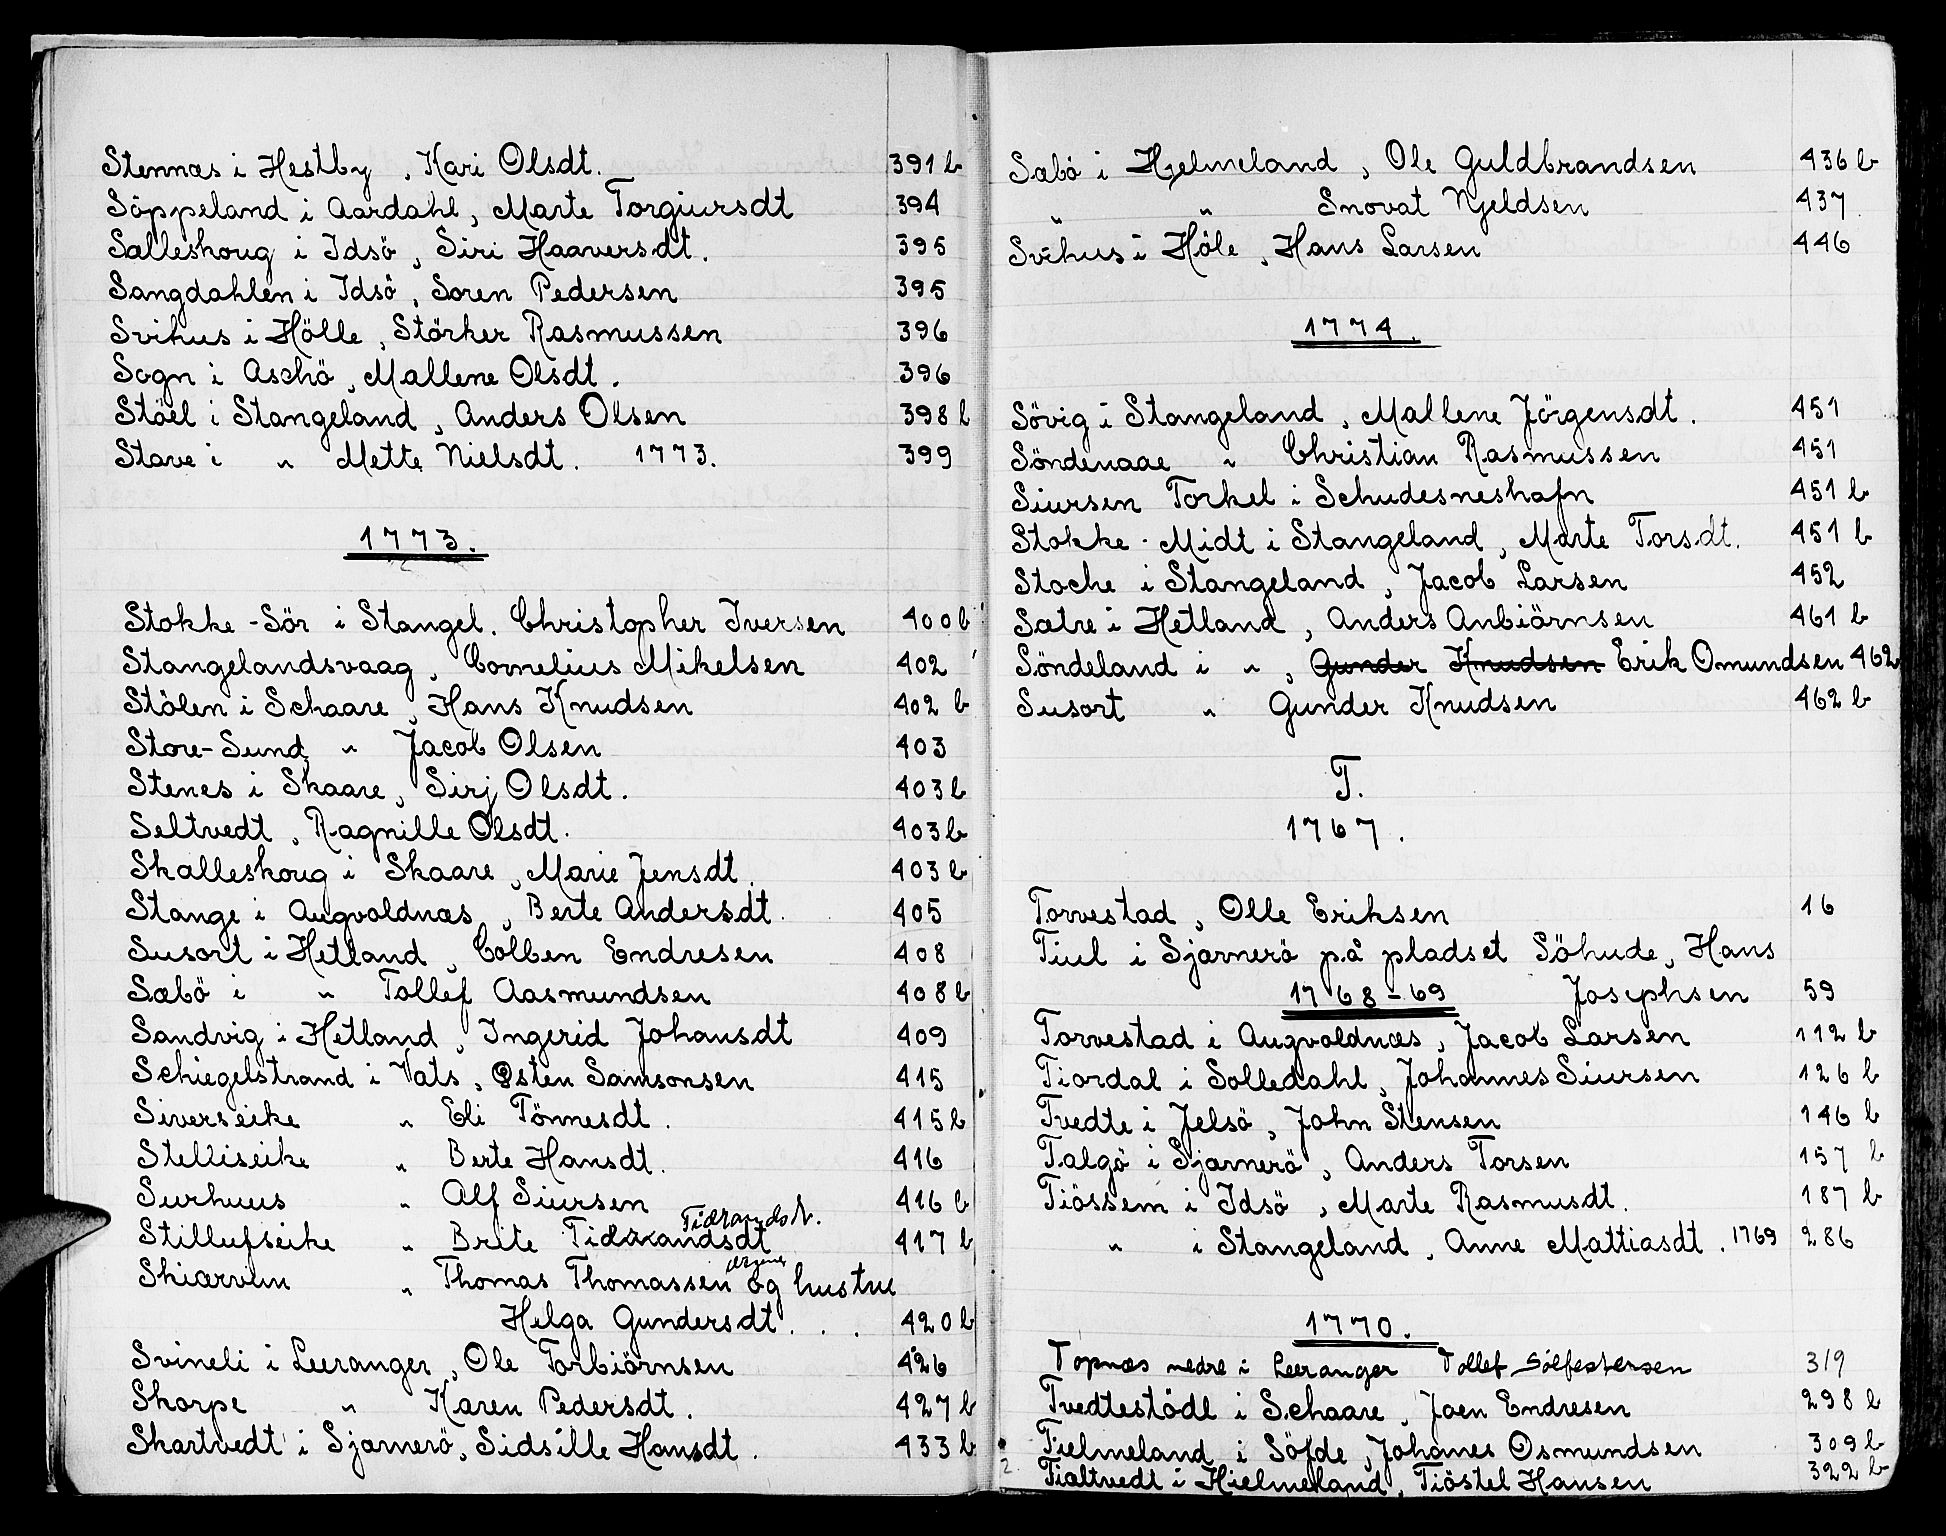 Stennæs i Hestby, Kari Olsdt. 391 b
Söppeland i Aardahl, Marte Torgiursdt 394
Sælleskoug i Idsö, Siri Haaversdt. 395
Sangdahlen i Idsö, Soren Pedersen 395
Svihus i Hölle, Störker Rasmussen 396
Sogn i Aschö, Mallene Olsdt. 396
Stöel i Stangeland, Anders Olsen 398 b
Stave i " Mette Nielsdt. 1773. 399
1773.
Stokke-Sör i Stangel. Christopher Iversen 400 b
Stangelandsvaag, Cornelius Mikelsen 402
Stölen i Schaare, Hans Knudsen 402 b
Store-Sund " Jacob Olsen 403
Stenes i Skaare, Sirj Olsdt. 403 b
Seltvedt, Ragnille Olsdt. 403 b
Skalleskoug i Skaare, Marie Jensdt. 403 b
Stange i Augvoldnæs, Berte Andersdt. 405
Susort i Hetland, Colben Endresen 408
Sæbö i " Tollef Aasmundsen 408 b
Sandvig i Hetland, Ingerid Johansdt 409
Schiegelstrand i Vats, Østen Samsonsen 415
Siverseike " Eli Tönnesdt. 415 b
Stelliseike " Berte Hansdt. 416
Surhuus " Alf Siursen 416 b
Tidrandsdt.
Stillufseike " Brite Tidxrandsdt 417 b
Skiærvim " Thomas Thomassen og hustru
Helga Gundersdt. . . 420 b
Svineli i Leeranger, Ole Torbiörnsen 426
Skorpe " Karen Pedersdt. 427 b
Skartvedt i Sjærnerö, Sidsille Hansdt. 433 b
Sæbö i Hjelmeland, Ole Guldbrandsen 436 b
" " Snovat Kjeldsen 437
Svihus i Höle, Hans Larsen 446
1774.
Sövig i Stangeland, Mallene Jörgensdt. 451
Söndenaae " Christian Rasmussen 451
Siursen Torkel i Schudesneshafn 451 b
Stokke-Midt i Stangeland, Marte Torsdt. 451 b
Stoche i Stangeland, Jacob Larsen 452
Sætre i Hetland, Anders Anbiörnsen 461 b
Söndeland i ", Gunder Knudsen Erik Omundsen 462
Susort " Gunder Knudsen 462 b
T.
1767.
Torvestad, Olle Eriksen 16
Tiul i Sjærnerö på pladset Söhude, Hans
1768-69 Josephsen 59
Torvestad i Augvoldnæs, Jacob Larsen 112 b
Tiordal i Solledahl, Johannes Siursen 126 b
Tvedte i Jelsö, John Stensen 146 b
Talgö i Sjærnerö, Anders Torsen 157 b
Tiössem i Idsö, Marte Rasmusdt. 187 b
" i Stangeland, Anne Mattiasdt. 1769 286
1770.
Topnæs nedre i Leeranger Tollef Sölfestersen 319
Tvedtestödl i Schaare, Joen Endresen 298 b
Tielmeland i Söfde, Johanes Osmundsen 309 b
Tialtvedt i Hielmeland, Tiöstel Hansen 322 b